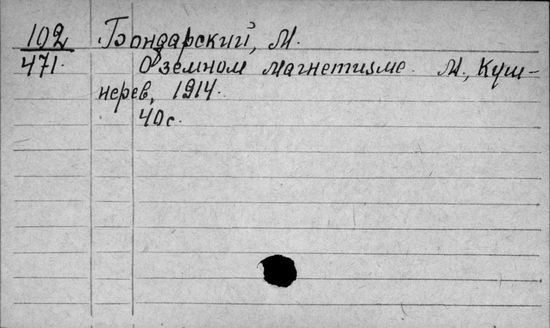 102 Бондарский, М.
471. О земном магнетизме. М., Куш-
нерев, 1914.
40 с.